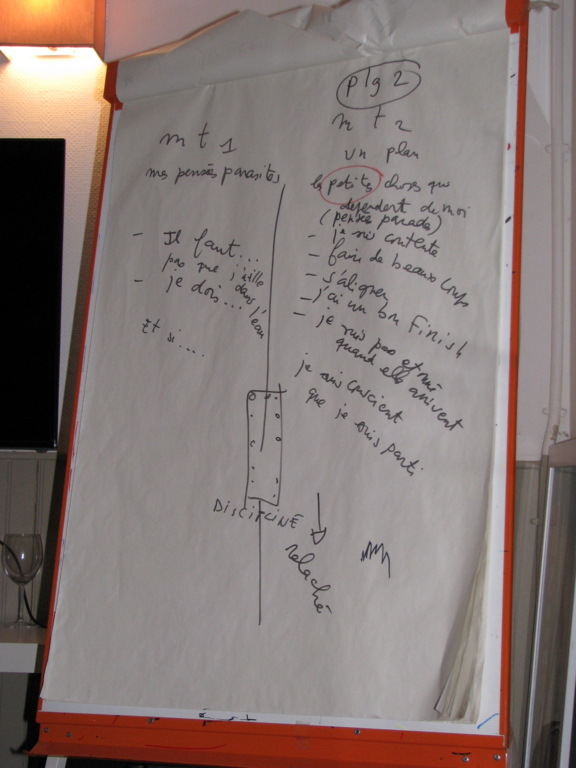 plg 2
mt1
mes pensées parasites
- Il faut...
pas que j'aille
dans l'eau
- je dois...
Et si....
mt2
un plan
les petites choses qui
dépendent de moi
(pensée parade)
- je suis contente
- faire de beaux coups
- s'aligner
- j'ai un bon Finish
- je suis pas
quand elles arrivent
je suis conscient
que je suis parti
DISCIPLINE
relaché